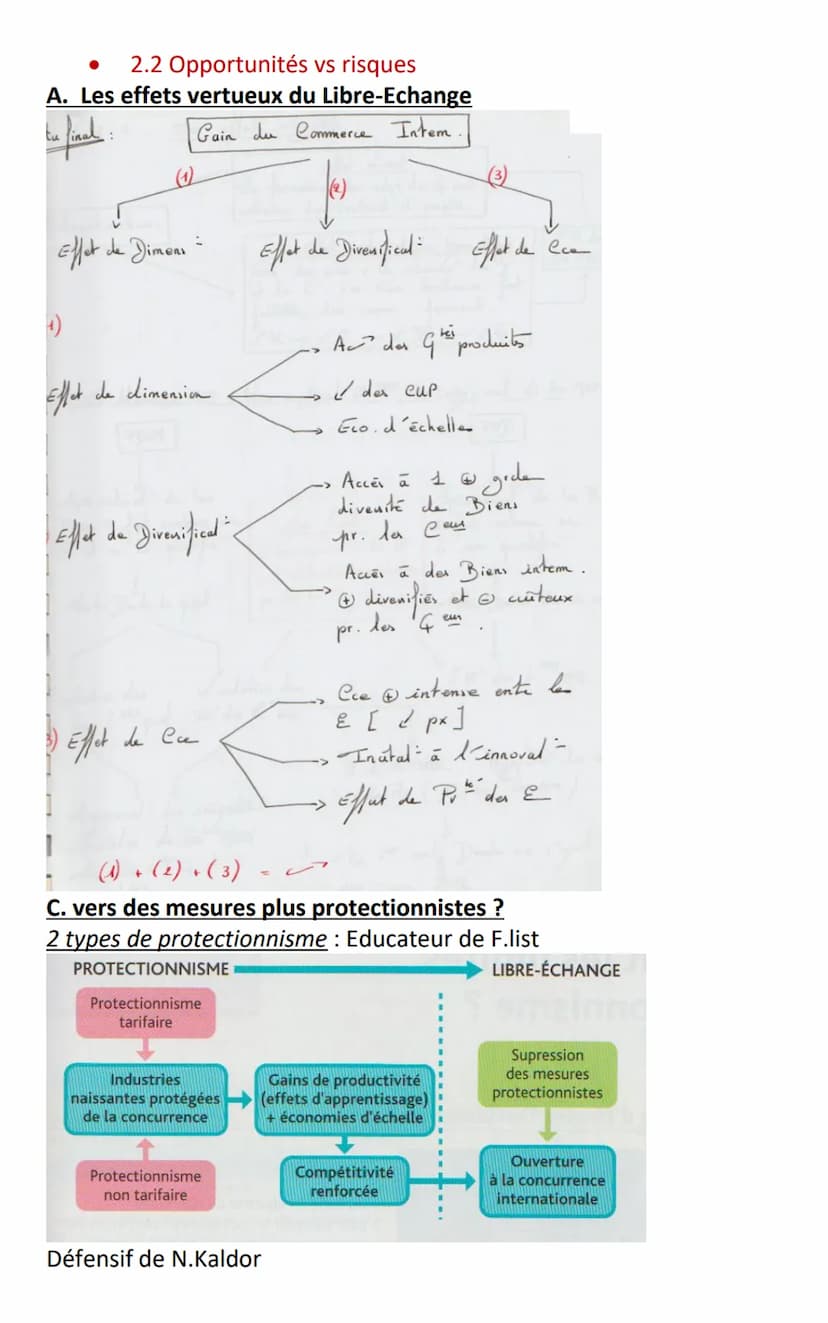 • 2.2 Opportunités vs risques
A. Les effets vertueux du Libre-Echange
final :
Gain du Commerce Intern.
(1)
(2)
(3)
Effet de Dimens°:
Effet de Diversificat°:
Effet de Cce
1)
Effet de dimension
des Qtés produits
↙ des CUP
Eco. d'échelle
Effet de Diversificat°:
Accès à 1 ⊕ grde
diversité de Biens
pr. les Ceurs
Accès à des Biens interm.
⊕ diversifiés et ⊖ coûteux
pr. les
3) Effet de Cce
Cce ⊕ intense entre les
E [ ↙ px ]
à l'innovat°
Effet de Pvté des E
(1) + (2) + (3) = ↗
C. vers des mesures plus protectionnistes ?
2 types de protectionnisme : Educateur de F.list
PROTECTIONNISME
LIBRE-ÉCHANGE
Protectionnisme
tarifaire
Industries
naissantes protégées
de la concurrence
Gains de productivité
(effets d'apprentissage)
+ économies d'échelle
Supression
des mesures
protectionnistes
Protectionnisme
non tarifaire
Compétitivité
renforcée
Ouverture
à la concurrence
internationale
Défensif de N.Kaldor